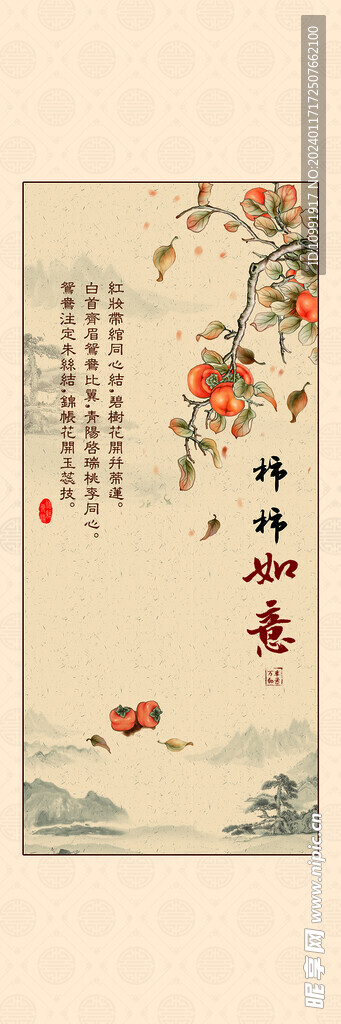 柿柿如意
紅妝帶綰同心結，碧樹花開幷蒂蓮。
白首齊眉鴛鴦比翼，青陽啓瑞桃李同心。
鴛鴦注定朱絲結，錦帳花開玉蕊技。
NO.20240117172507662100
ID:10991917
昵享网 www.nipic.cn